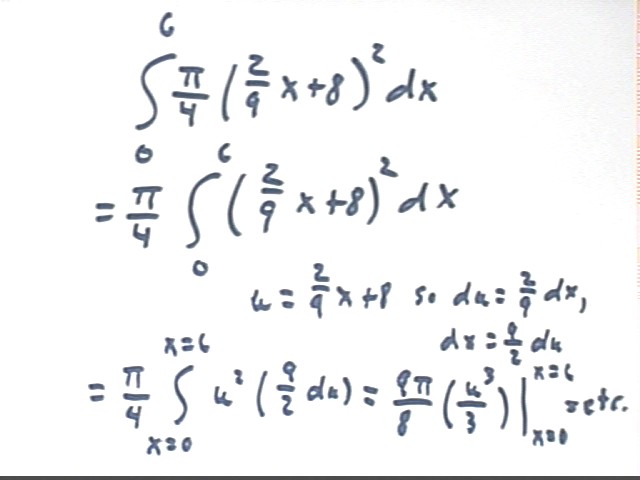 ∫₀⁶ π/4 (2/9 x+8)² dx
= π/4 ∫₀⁶ (2/9 x+8)² dx
u = 2/9 x+8 so du = 2/9 dx,
dx = 9/2 du
= π/4 ∫ₓ₌₀ˣ⁼⁶ u² (9/2 du) = 9π/8 (u³/3) |ₓ₌₀ˣ⁼⁶ = etc.